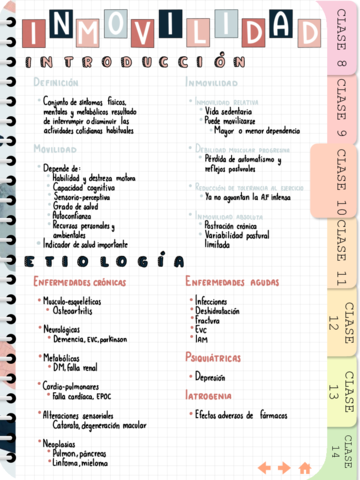 INMOVILIDAD
INTRODUCCIÓN
DEFINICIÓN
Conjunto de síntomas físicos,
mentales y metabólicos resultado
de interrumpir o disminuir las
actividades cotidianas habituales
MOVILIDAD
Depende de:
Habilidad y destreza motora
Capacidad cognitiva
Sensorio-perceptiva
Grado de salud
Autoconfianza
Recursos personales y
ambientales
Indicador de salud importante
INMOVILIDAD
INMOVILIDAD RELATIVA
Vida sedentaria
Puede movilizarse
Mayor o menor dependencia
DEBILIDAD MUSCULAR PROGRESIVA
Pérdida de automatismo y
reflejos posturales
REDUCCIÓN DE TOLERANCIA AL EJERCICIO
Ya no aguantan la A.F intensa
INMOVILIDAD ABSOLUTA
Postración crónica
Variabilidad postural
limitada
ETIOLOGÍA
ENFERMEDADES CRÓNICAS
Musculo-esqueléticas
Osteoartritis
Neurológicas
Demencia, EVC, parkinson
Metabólicas
DM, falla renal
Cardio-pulmonares
Falla cardíaca, EPOC
Alteraciones sensoriales
Catarata, degeneración macular
Neoplasias
Pulmón, páncreas,
Linfoma, mieloma
ENFERMEDADES AGUDAS
Infecciones
Deshidratación
Fractura
EVC
IAM
PSIQUIÁTRICAS
Depresión
IATROGENIA
Efectos adversos de fármacos
CLASE 8
CLASE 9
CLASE 10
CLASE 11
CLASE 12
CLASE 13
CLASE 14